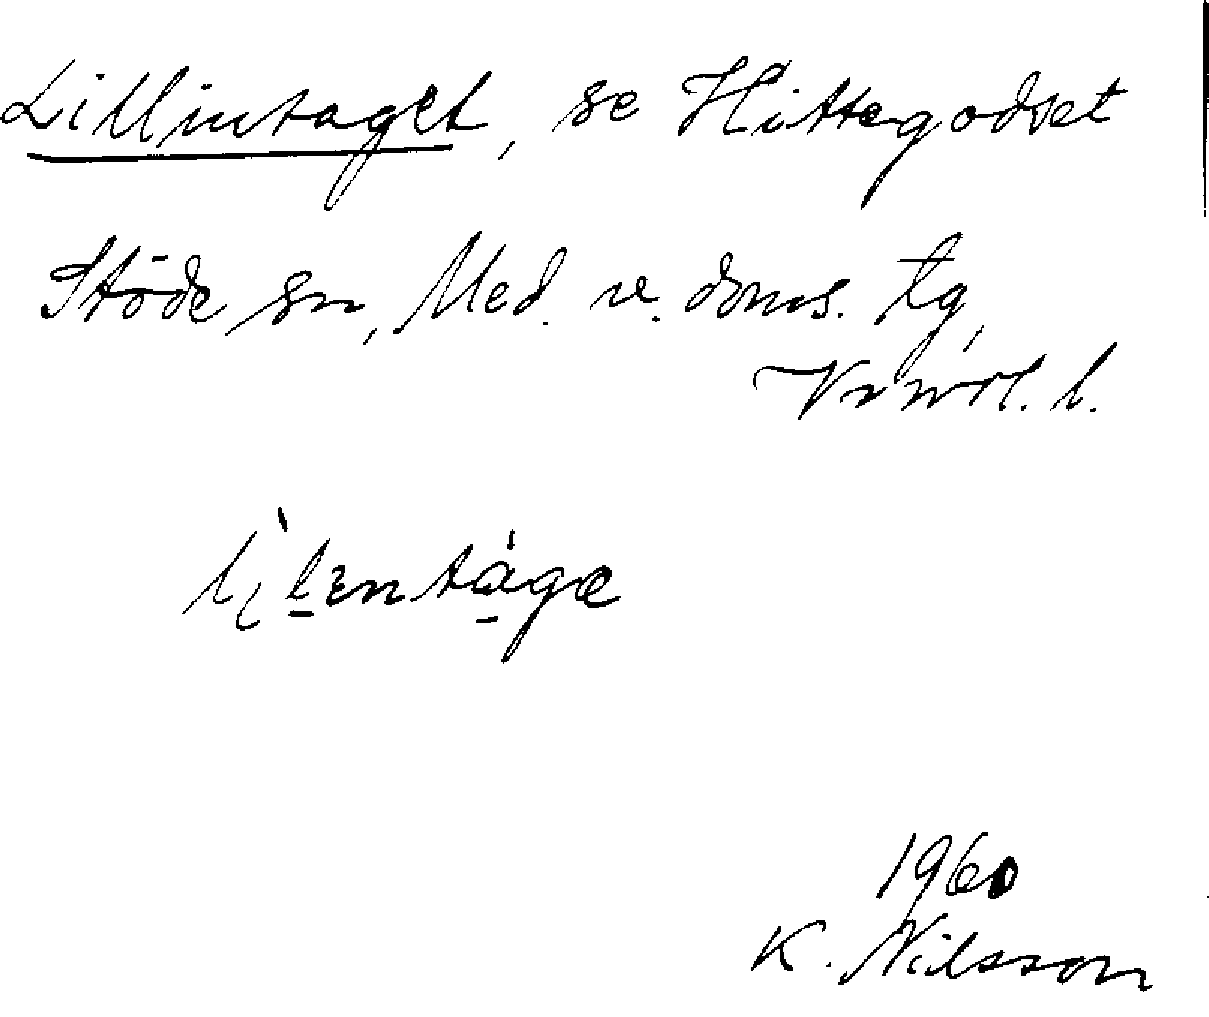 Lillintaget, se Hittegodset
Stöde sn, Med. v. doms. tg,
Vnorrl. l.
1960
K. Nilsson